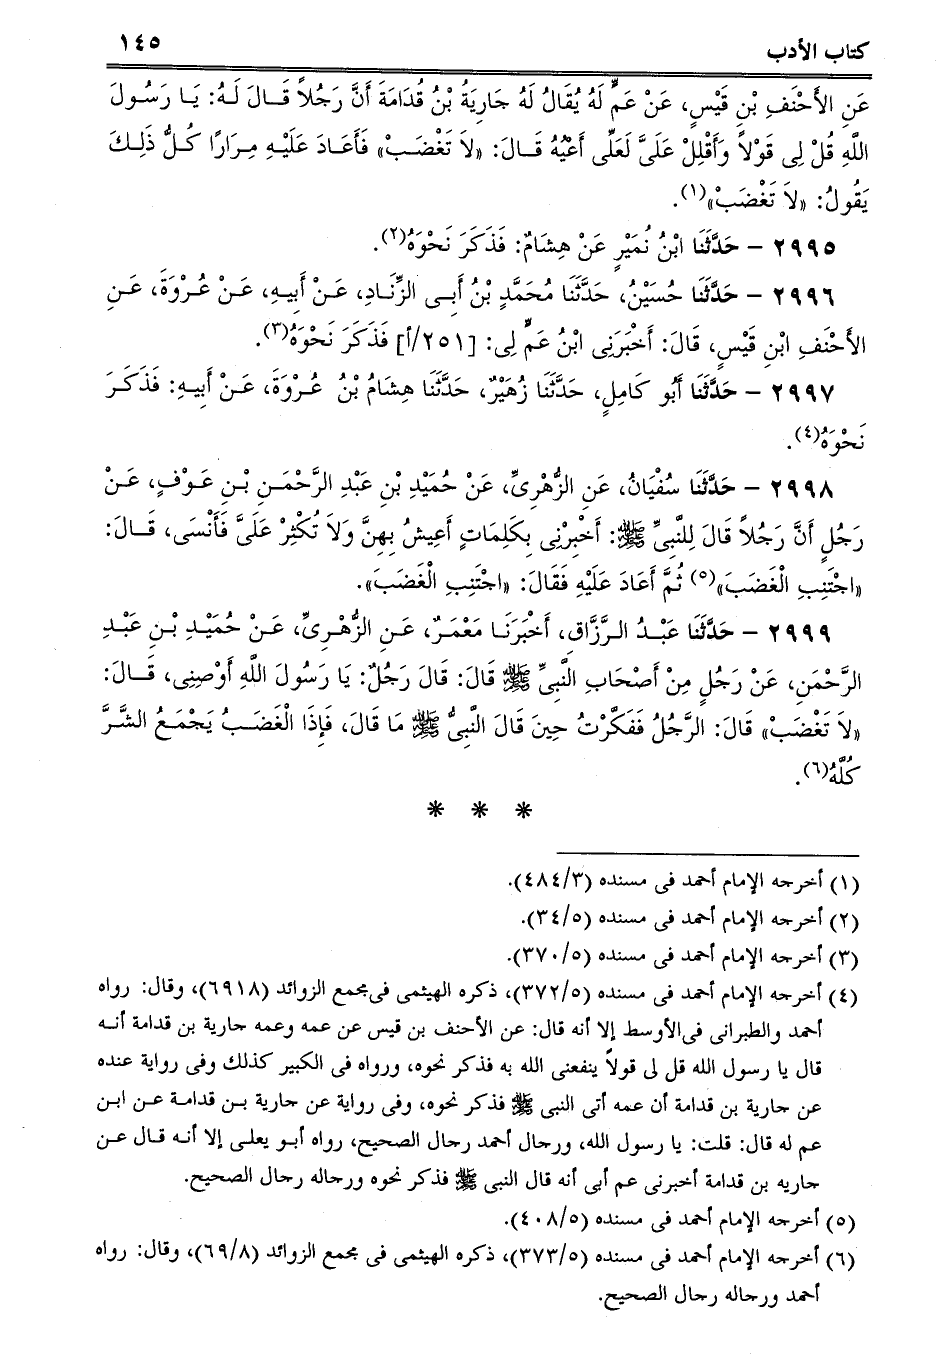 كتاب الأدب ١٤٥
عَنِ الأَحْنَفِ بْنِ قَيْسٍ، عَنْ عَمٍّ لَهُ يُقَالُ لَهُ جَارِيَةُ بْنُ قُدَامَةَ أَنَّ رَجُلاً قَالَ لَهُ: يَا رَسُولَ
اللَّهِ قُلْ لِى قَوْلاً وَأَقْلِلْ عَلَىَّ لَعَلِّى أَعِيُهُ قَالَ: «لاَ تَغْضَبْ» فَأَعَادَ عَلَيْهِ مِرَارًا كُلُّ ذَلِكَ
يَقُولُ: «لاَ تَغْضَبْ»(١).
٢٩٩٥ – حَدَّثَنَا ابْنُ نُمَيْرٍ عَنْ هِشَامٌ: فَذَكَرَ نَحْوَهُ(٢).
٢٩٩٦ – حَدَّثَنَا حُسَيْنُ، حَدَّثَنَا مُحَمَّدٍ بْنُ أَبِى الزِّنَادِ، عَنْ أَبِيهِ، عَنْ عُرْوَةَ، عَنِ
الأَحْنَفِ ابْنِ قَيْسٍ، قَالَ: أَخْبَرَنِى ابْنُ عَمٍّ لِى: [٢٥١/أ] فَذَكَرَ نَحْوَهُ(٣).
٢٩٩٧ – حَدَّثَنَا أَبُو كَامِلٍ، حَدَّثَنَا زُهَيْرٌ، حَدَّثَنَا هِشَامُ بْنُ عُرْوَةَ، عَنْ أَبِيهِ: فَذَكَرَ
نَحْوَهُ(٤).
٢٩٩٨ – حَدَّثَنَا سُفْيَانُ، عَنِ الزُّهْرِىِّ، عَنْ حُمَيْدِ بْنِ عَبْدِ الرَّحْمَنِ بْنِ عَوْفٍ، عَنْ
رَجُلٍ أَنَّ رَجُلاً قَالَ لِلنَّبِىِّ ﷺ: أَخْبِرْنِى بِكَلِمَاتٍ أَعِيشُ بِهِنَّ وَلاَ تُكْثِرْ عَلَىَّ فَأَنْسَى، قَالَ:
«اجْتَنِبِ الْغَضَبَ»(٥) ثُمَّ أَعَادَ عَلَيْهِ فَقَالَ: «اجْتَنِبِ الْغَضَبَ».
٢٩٩٩ – حَدَّثَنَا عَبْدُ الرَّزَّاقِ، أَخْبَرَنَا مَعْمَرٌ، عَنِ الزُّهْرِىِّ، عَنْ حُمَيْدِ بْنِ عَبْدِ
الرَّحْمَنِ، عَنْ رَجُلٍ مِنْ أَصْحَابِ النَّبِىِّ ﷺ قَالَ: قَالَ رَجُلٌ: يَا رَسُولَ اللَّهِ أَوْصِنِى، قَالَ:
«لاَ تَغْضَبْ» قَالَ: الرَّجُلُ فَفَكَّرْتُ حِينَ قَالَ النَّبِىُّ ﷺ مَا قَالَ، فَإِذَا الْغَضَبُ يَجْمَعُ الشَّرَّ
كُلَّهُ(٦).
* * *
(١) أخرجه الإمام أحمد فى مسنده (٤٨٤/٣).
(٢) أخرجه الإمام أحمد فى مسنده (٣٤/٥).
(٣) أخرجه الإمام أحمد فى مسنده (٣٧٠/٥).
(٤) أخرجه الإمام أحمد فى مسنده (٣٧٢/٥)، ذكره الهيثمى فى مجمع الزوائد (٦٩١٨)، وقال: رواه
أحمد والطبرانى فى الأوسط إلا أنه قال: عن الأحنف بن قيس عن عمه وعمه حارية بن قدامة أنه
قال يا رسول الله قل لى قولاً ينفعنى الله به فذكر نحوه، ورواه فى الكبير كذلك وفى رواية عنده
عن حارية بن قدامة أن عمه أتى النبى ﷺ فذكر نحوه، وفى رواية عن حارية بن قدامة عن ابن
عم له قال: قلت: يا رسول الله، ورجال أحمد رجال الصحيح، رواه أبو يعلى إلا أنه قال عن
حاريه بن قدامة أخبرنى عم أبى أنه قال النبى ﷺ فذكر نحوه ورجاله رجال الصحيح.
(٥) أخرجه الإمام أحمد فى مسنده (٤٠٨/٥).
(٦) أخرجه الإمام أحمد فى مسنده (٣٧٣/٥)، ذكره الهيثمى فى مجمع الزوائد (٦٩/٨)، وقال: رواه
أحمد ورجاله رجال الصحيح.